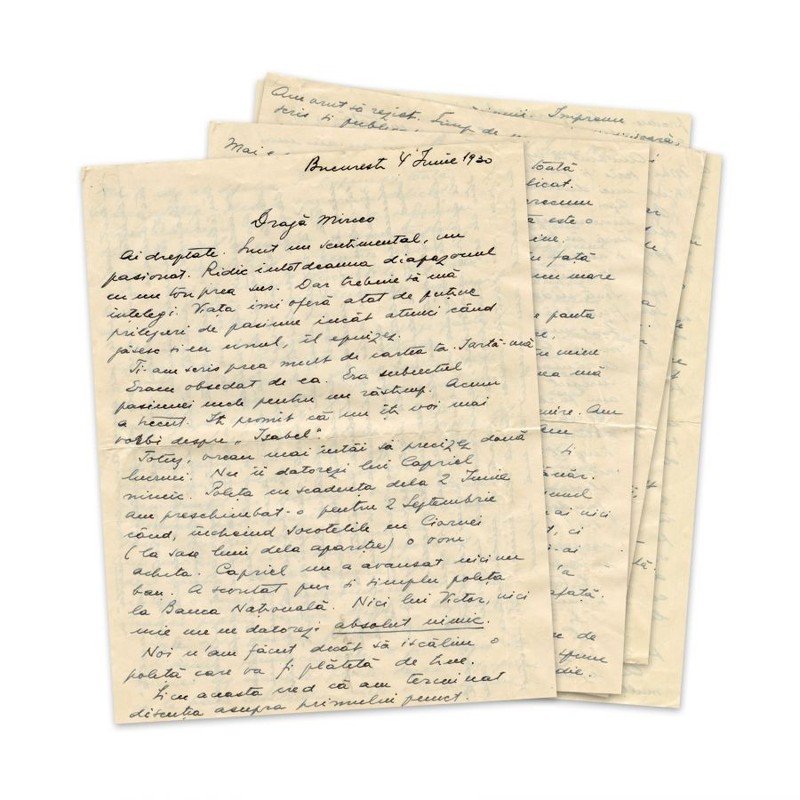 Am vrut să rezist. Timp de
scris și public
Mai
București 4 Iunie 1930
Dragă Mircea
Ai dreptate. Sunt un sentimental, un
pasionat. Ridic întotdeauna diapazonul
cu un ton prea sus. Dar trebuie să mă
înțelegi. Viața îmi oferă atât de puține
prilejuri de pasiune încât atunci când
găsesc și eu unul, îl epuizez.
Ți-am scris prea mult de cartea ta. Iartă-mă
Eram obsedat de ea. Era subiectul
pasiunei mele pentru un răstimp. Acum
a trecut. Îți promit că nu îți voi mai
vorbi despre „Isabel".
Totuș, vream mai întâi să precizez două
lucruri. Nu îi datorezi lui Capriel
nimic. Polița cu scadența dela 2 Iunie
am preschimbat-o pentru 2 Septembrie
când, încheind socotelile cu Ciornei
(la șase luni dela apariție) o vom
achita. Capriel nu a avansat nici un
ban. A scontat pur și simplu polița
la Banca Națională. Nici lui Victor, nici
mie nu ne datorezi absolut nimic.
Noi n'am făcut decât să iscălim o
poliță care va fi plătită de tine.
Și cu aceasta cred că am terminat
discuția asupra primului punct.
toată
licat.
precum
a este o
ine.
n față
un mare
e panta
e,
u mine
ea mă
uire. Am
em
și
ănăr.
unul
mai nici
t, ci
-ai
'a
afață.
re de
spun
die.